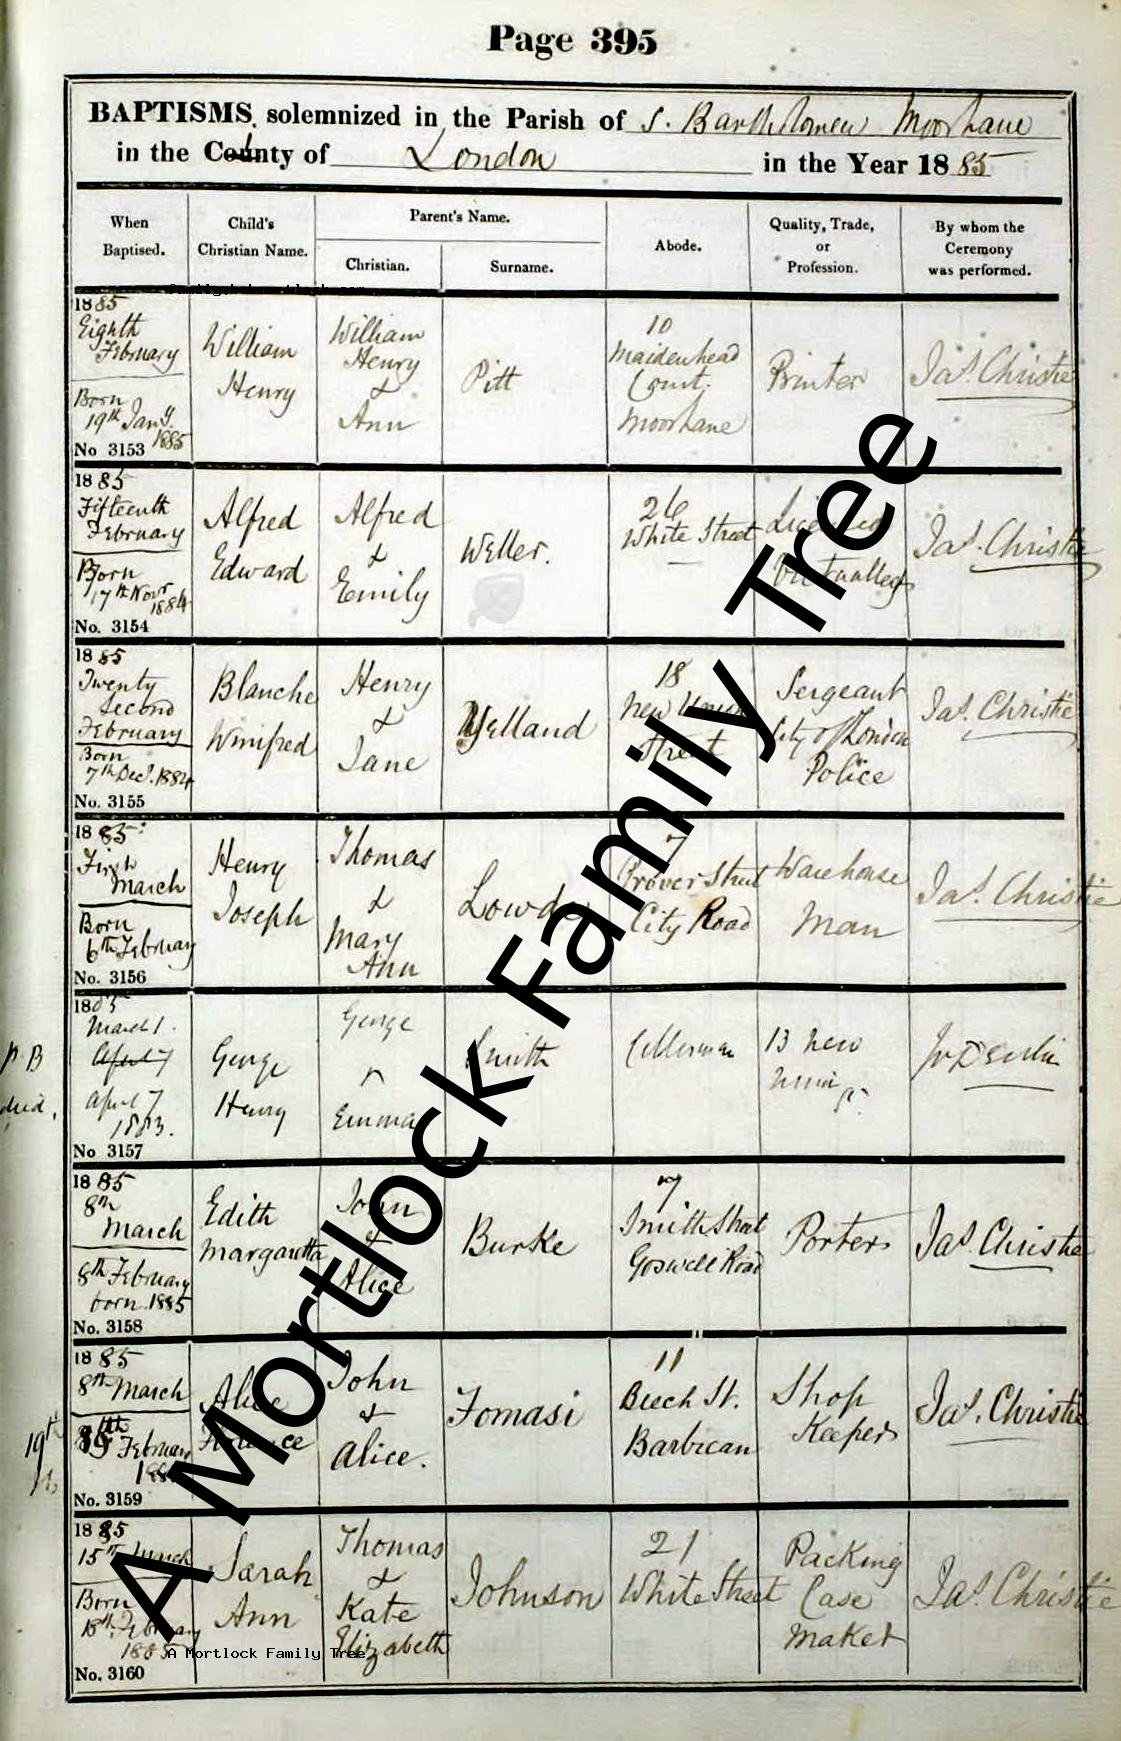 Page 395
BAPTISMS solemnized in the Parish of S. Bartholomew Moor Lane
in the County of London in the Year 1885
When Baptised.
Child's Christian Name.
Parent's Name.
Christian.
Surname.
Abode.
Quality, Trade, or Profession.
By whom the Ceremony was performed.
1885
Eighth
February
Born
19th Jany
1885
No 3153
William
Henry
William
Henry
&
Ann
Pitt
10
Maidenhead
Court
Moor Lane
Printer
Jas. Christie
1885
Fifteenth
February
Born
17th Novr
1884
No. 3154
Alfred
Edward
Alfred
&
Emily
Weller.
26
White Street
Licensed
Victualler
Jas. Christie
1885
Twenty
Second
February
Born
7th Decr. 1884
No. 3155
Blanche
Winifred
Henry
&
Jane
Yelland
18
New Union
Street
Sergeant
City of London
Police
Jas. Christie
1885
First
March
Born
6th February
No. 3156
Henry
Joseph
Thomas
&
Mary
Ann
7
Street
City Road
Warehouse
Man
Jas. Christie
1885
March 1.
April 7
April 7
1883.
No 3157
George
Henry
George
&
Emma
Smith
13 New
Union
St.
1885
8th
March
8th February
born 1885
No. 3158
Edith
Margaretta
John
&
Alice
Burke
7
Smith Street
Goswell Road
Porter
Jas. Christie
1885
8th March
19th
February
No. 3159
Alice
Florence
John
&
Alice.
Tomasi
11
Beech St.
Barbican
Shop
Keeper
Jas. Christie
1885
15th March
Born
February
1885
No. 3160
Sarah
Ann
Thomas
&
Kate
Elizabeth
Johnson
21
White Street
Packing
Case
Maker
Jas. Christie
A Mortlock Family Tree
A Mortlock Family Tree